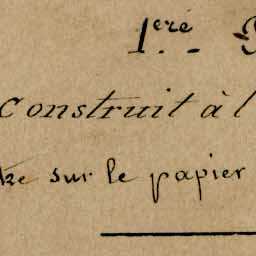 1.ere
Construit à l
sur le papier